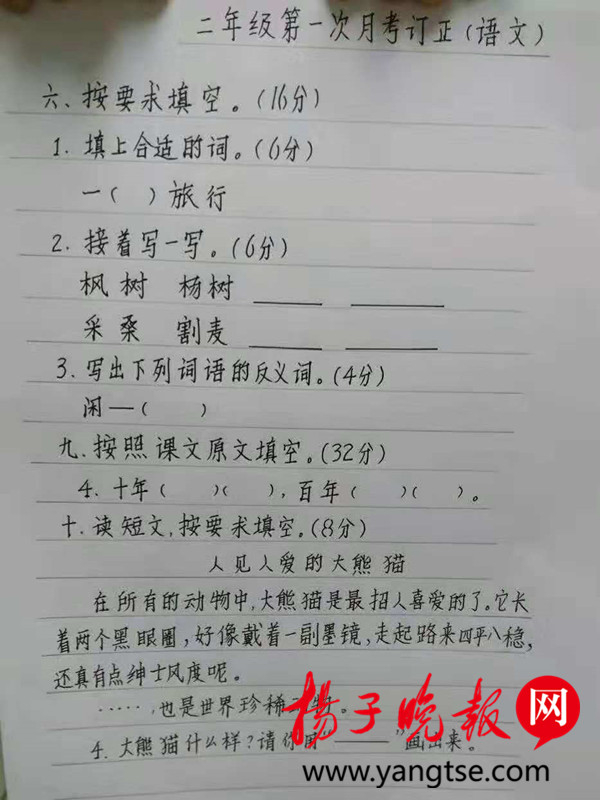 二年级第一次月考订正(语文)
六、按要求填空。(16分)
1. 填上合适的词。(6分)
一(   )旅行
2. 接着写一写。(6分)
枫树 杨树 ______ ______
采桑 割麦 ______ ______
3. 写出下列词语的反义词。(4分)
闲—(   )
九.按照课文原文填空。(32分)
4. 十年(   )(   ),百年(   )(   )。
十.读短文,按要求填空。(8分)
人见人爱的大熊猫
在所有的动物中,大熊猫是最招人喜爱的了。它长
着两个黑眼圈,好像戴着一副墨镜,走起路来四平八稳,
还真有点绅士风度呢。
·····,也是世界珍稀。
4. 大熊猫什么样?请你"____"画出来。
扬子晚报网
www.yangtse.com